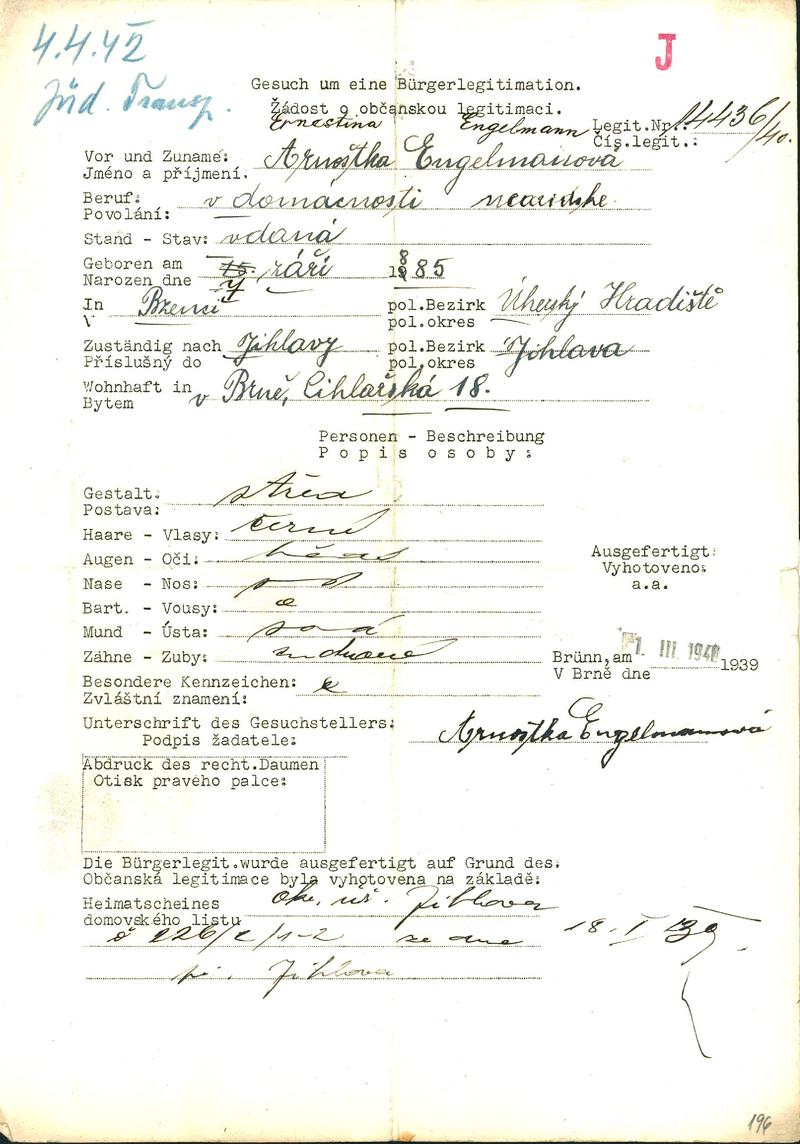 4.4.42
J
Jüd. Transp.
Gesuch um eine Bürgerlegitimation.
Žádost o občanskou legitimaci.
Ernestina Engelmann
Legit.Nr.: 14436/40.
Čís.legit.:
Vor und Zuname: Arnoštka Engelmanová
Jméno a příjmení.
Beruf: v domácnosti
Povolání:
Stand - Stav: vdaná
Geboren am 15. září 1885
Narozen dne 7
In Bzenci pol.Bezirk Uherský Hradiště
V pol.okres
Zuständig nach Jihlavy pol.Bezirk Jihlava
Příslušný do pol.okres
Wohnhaft in v Brně, Cihlářská 18.
Bytem
Personen - Beschreibung
Popis osoby:
Gestalt:
Postava:
Haare - Vlasy: černé
Augen - Oči:
Nase - Nos:
Bart. - Vousy:
Mund - Ústa:
Zähne - Zuby:
Ausgefertigt:
Vyhotoveno:
a.a.
Brünn,am 1. III. 1940 1939
V Brně dne
Besondere Kennzeichen:
Zvláštní znamení:
Unterschrift des Gesuchstellers: Arnoštka Engelmanová
Podpis žadatele:
Abdruck des recht.Daumen
Otisk pravého palce:
Die Bürgerlegit.wurde ausgefertigt auf Grund des:
Občanská legitimace byla vyhotovena na základě:
Heimatscheines okr. úř. Jihlava
domovského listu
ze dne 18. I 39
Jihlava
196